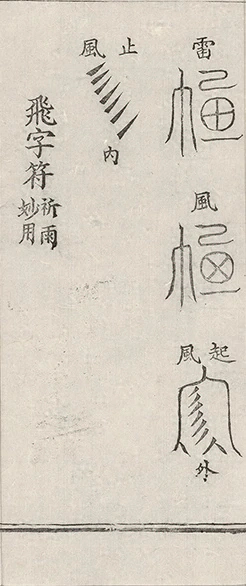 雷
風
起風
外
止風
内
飛字符
祈雨
妙用